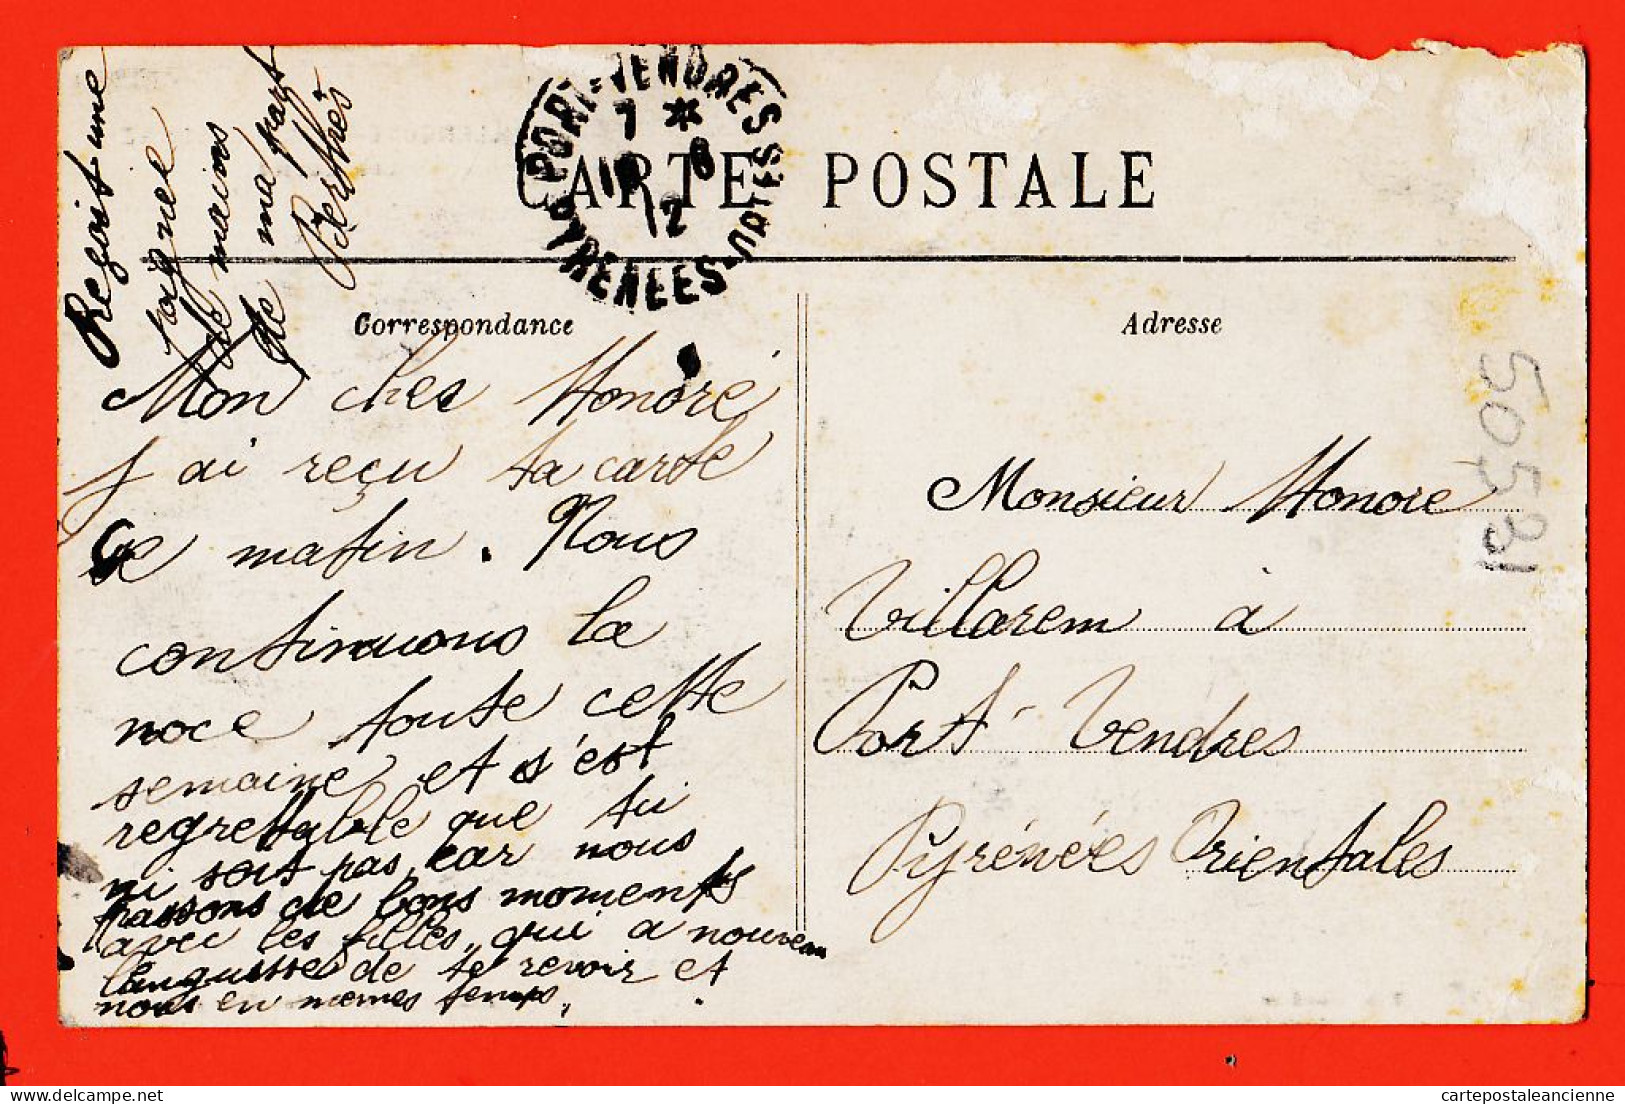 Reçoit une
pognee
de mains
de ma part
Berthès
PORT-VENDRES
PYRENEES-ORTES
7 * 8
12
CARTE POSTALE
Correspondance
Adresse
Mon cher Honoré
j'ai reçu ta carte
ce matin. Nous
continuons la
noce toute cette
semaine et s'est
regrettabble que tu
ni soit pas, car nous
passons de bons moments
avec les filles, qui a nouveau
languisse de te revoir et
nous en memes temps.
Monsieur Honore
Villarem à
Port-Vendres
Pyrénées Orientales
505 31
delcampe.net
cartepostaleancienne